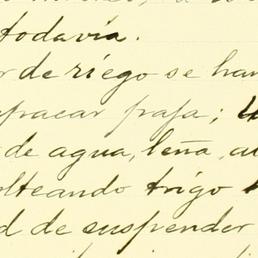 todavía.
r de riego se han
paja;
de agua, leña, au
olteando trigo
d de suspender